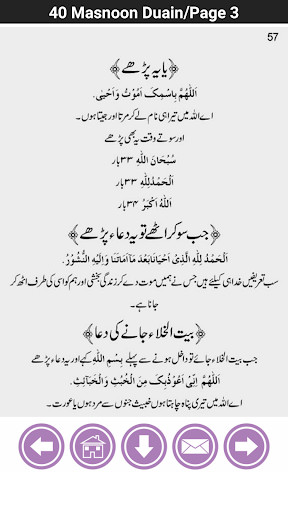 40 Masnoon Duain/Page 3
57
﴿یا یہ پڑھے﴾
اَللّٰهُمَّ بِاسْمِکَ اَمُوْتُ وَاَحْیٰی.
اے اللہ میں تیرا ہی نام لے کر مرتا اور جیتا ہوں۔
اور سوتے وقت یہ بھی پڑھے
سُبْحَانَ اللّٰهِ ۳۳ بار
اَلْحَمْدُلِلّٰهِ ۳۳ بار
اَللّٰهُ اَکْبَرُ ۳۴ بار
﴿جب سو کر اٹھے تو یہ دعاء پڑھے﴾
اَلْحَمْدُ لِلّٰهِ الَّذِیْ اَحْیَانَابَعْدَ مَآ اَمَاتَنَا وَاِلَیْهِ النُّشُوْرُ.
سب تعریفیں خدا ہی کیلئے ہیں جس نے ہمیں موت دے کر زندگی بخشی اور ہم کو اسی کی طرف اٹھ کر
جانا ہے۔
﴿بیت الخلاء جانے کی دعا﴾
جب بیت الخلاء جائے تو داخل ہونے سے پہلے بِسْمِ اللّٰهِ کہے اور یہ دعاء پڑھے
اَللّٰهُمَّ اِنِّی اَعُوْذُبِکَ مِنَ الْخُبُثِ وَالْخَبَآئِثِ.
اے اللہ میں تیری پناہ چاہتا ہوں خبیث جنوں سے مرد ہوں یا عورت۔